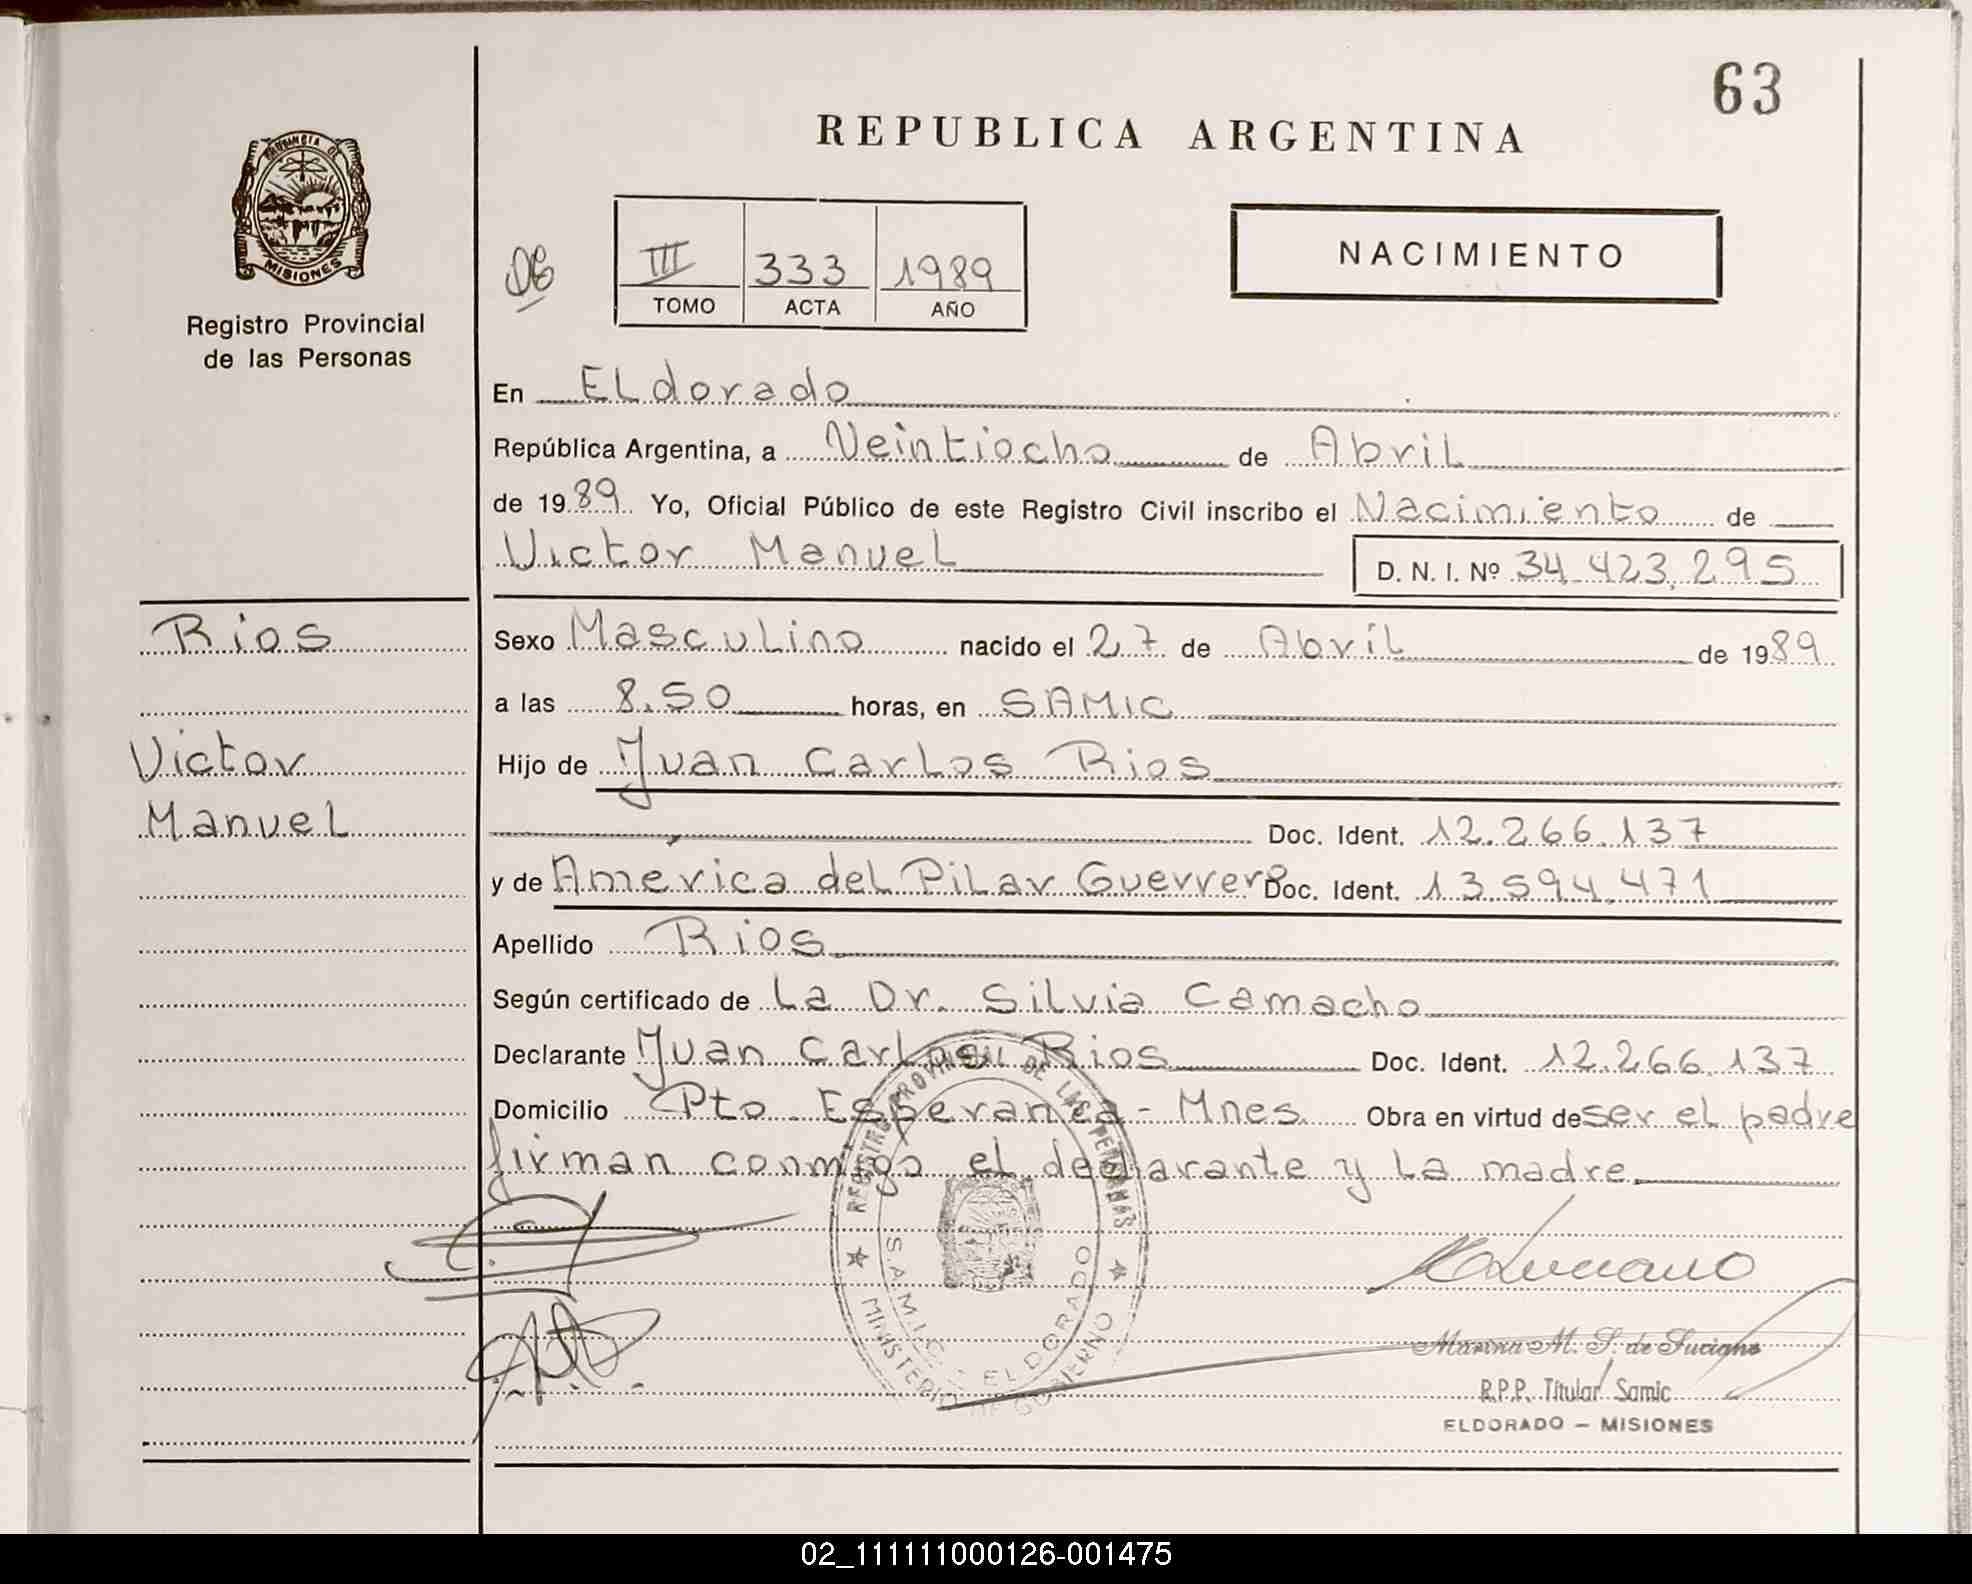 63
REPUBLICA ARGENTINA
PROVINCIA DE
MISIONES
Registro Provincial
de las Personas
III 333 1989
TOMO ACTA AÑO
NACIMIENTO
En ELdorado
República Argentina, a Veintiocho de Abril
de 1989. Yo, Oficial Público de este Registro Civil inscribo el Nacimiento de
Victor Manuel D. N. I. Nº 34.423.295
Rios
Victor
Manuel
Sexo Masculino nacido el 27 de Abril de 1989
a las 8.50 horas, en SAMIC
Hijo de Juan Carlos Rios
Doc. Ident. 12.266.137
y de América del Pilar Guerrero Doc. Ident. 13.594.471
Apellido Rios
Según certificado de La Dr. Silvia Camacho
Declarante Juan Carlos Rios Doc. Ident. 12.266.137
Domicilio Pto Esperanza - Mnes. Obra en virtud de ser el padre
firman conmigo el declarante y la madre
REGISTRO PROVINCIAL DE LAS PERSONAS
MINISTERIO DE GOBIERNO
S.A.M.I.C. - ELDORADO
Marina M. S. de Luciano
R.P.P. Titular Samic
ELDORADO - MISIONES
02_111111000126-001475